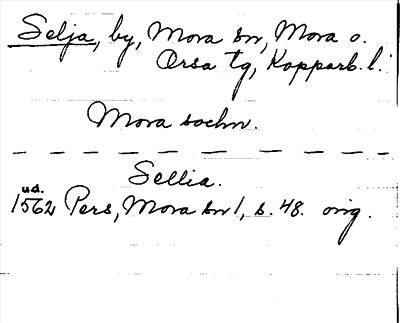 Selja, by, Mora sn, Mora o.
Orsa tg, Kopparb. l.
Mora sochn.
Sellia.
ud.
1562 Pers, Mora sn 1, s. 48. orig.